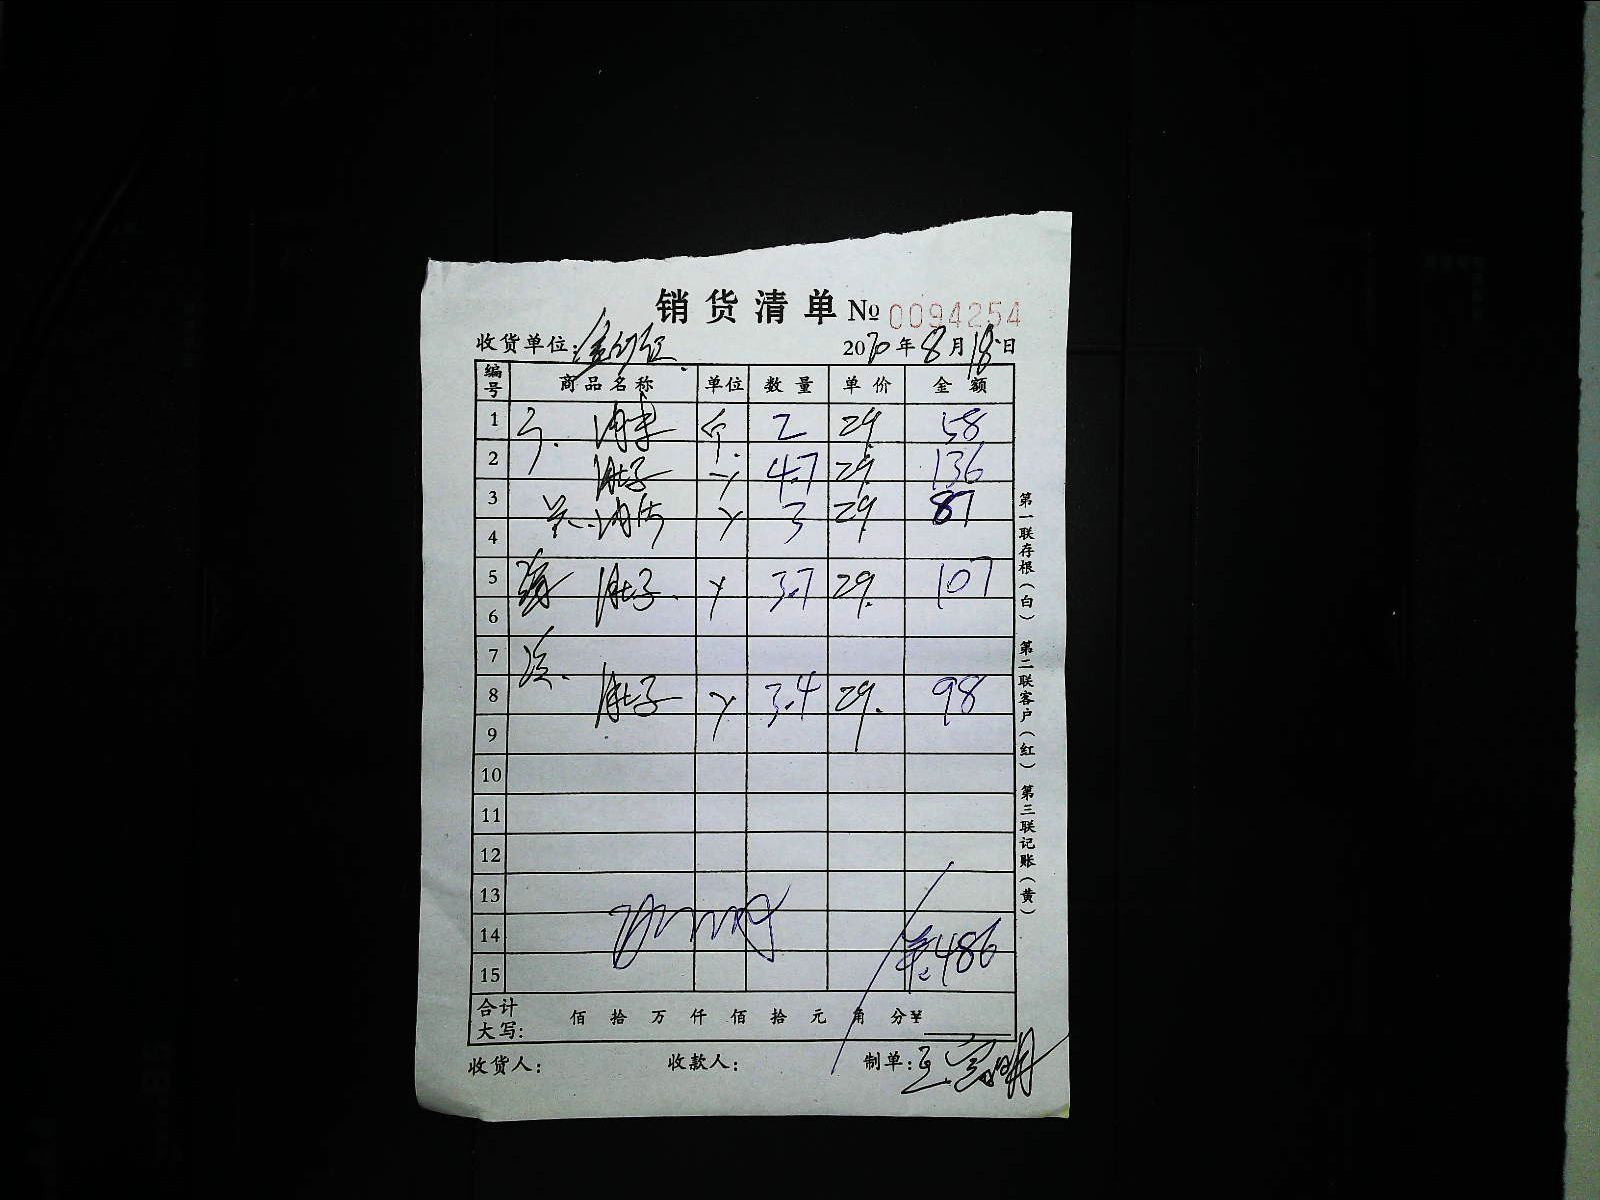 销货清单 № 0094254
收货单位：
2020年8月18日
编号 商品名称 单位 数量 单价 金额
1 个 2 29. 58
2 肚子 4.7 29. 136
3 3 29. 87
4
5 肚子. 3.7 29. 107
6
7
8 肚子 3.4 29. 98
9
10
11
12
13
14
15 486
合计
大写： 佰 拾 万 仟 佰 拾 元 角 分¥
收货人： 收款人： 制单：
第一联存根（白） 第二联客户（红） 第三联记账（黄）